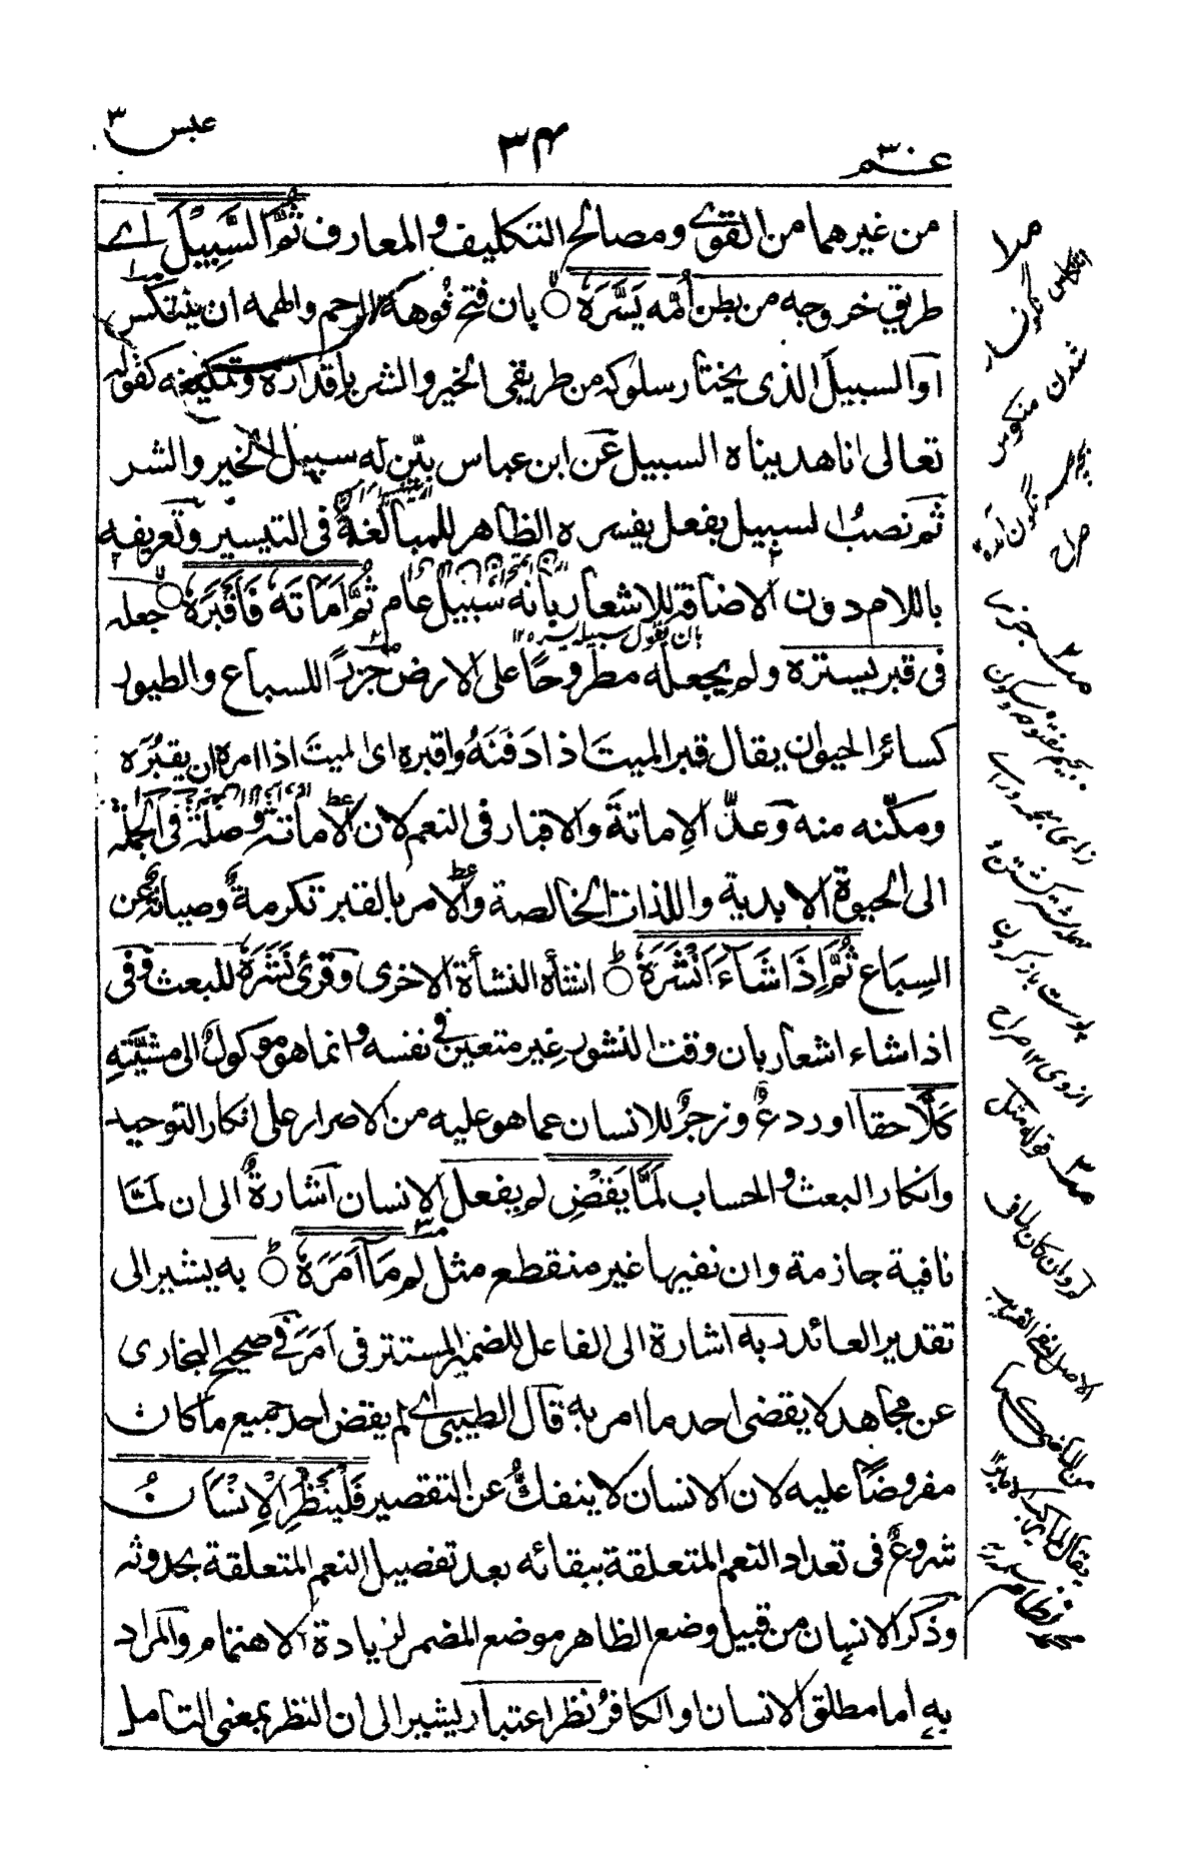 عبس ٣
٣٤
عـم ٣٠
من غيرهما من القوى ومصالح التكليف والمعارف ثُمَّ السَّبِيْلَ اى
طريق خروجه من بطن أُمّه يَسَّرَهٗ بان فتح فُوهة الرحم والهمه ان ينتكس
اَو السبيلَ الذى يختار سلوكه من طريقى الخير والشر بإقداره وتمكينه كقوله
تعالى انا هديناه السبيل عَن ابن عباس بيّن له سبيل الخير والشر
ثم نصبُ السبيل بفعل يفسره الظاهر للمبالغةُ فى التيسير وتَعريفه
باللام دون الاضافة للاشعار بانه سَبيل عام ثُمَّ اَمَاتَهٗ فَاَقْبَرَهٗ جعله
بان يقول سبيله يسره ١٢
فى قبر يستره ولم يجعله مطروحًا على الارض جَزَرًا للسباع والطيور
كسائر الحيوان يقال قبر الميتَ اذا دَفَنَهُ واقبره اى الميتَ اذا امره ان يقبُرَه
ومكّنه منه وَعدّ الاِماتةَ والاقبار فى النعم لان الاماتة وصلة فى الجملة
الى الحيوة الابدية واللذات الخالصة والامر بالقبر تكرمةٌ وصيانة عن
السِباع ثُمَّ اِذَا شَآءَ اَنْشَرَهٗ انشأه النشأة الاخرى وقرئ نَشَرَهٗ للبعث وفى
اذا شاء اشعار بان وقت النشور غير متعين فى نفسه وانما هو موكولٌ الى مشيّته
كَلَّا حقا او ردعٌ وزجرٌ للانسان عما هو عليه من الاصرار على انكار التوحيد
وانكار البعث والحساب لَمَّا يَقْضِ لم يفعل الانسان اشارةٌ الى ان لَمَّا
نافية جازمة وان نفيها غير منقطع مثل لم مَآ اَمَرَهٗ به يشير الى
تقدير العائد به اشارة الى الفاعل للضمير المستتر فى اَمَرَ فى صحيح البخارى
عن مجاهد لا يقضى احد ما امر به قال الطيبى اى لم يقض احد جميع ما كان
مفروضًا عليه لان الانسان لا ينفكُّ عن التقصير فَلْيَنْظُرِ الْاِنْسَانُ
شروعٌ فى تعداد النعم المتعلقة ببقائه بعد تفصيل النعم المتعلقة بحدوثه
وذكر الانسان من قبيل وضع الظاهر موضع المضمر لزيادة الاهتمام والمراد
به اما مطلق الانسان او الكافرُ نظرَ اعتبار يشير الى ان النظر بمعنى التامل
انتكاس نگونسار
شدن منكوس
نگون آمده
صراح
جزر
بجيم مفتوح وسكون
زاى معجمه وراء
پوست باز كردن
ازوى ١٢ صراح
قوله مثل
لم وان كان لما فى
الاصل لنفى القريب
من الماضى